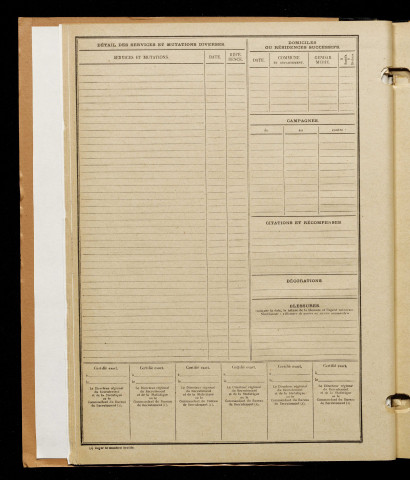 DÉTAIL DES SERVICES ET MUTATIONS DIVERSES
SERVICES ET MUTATIONS DATE
DOMICILES
OU RÉSIDENCES SUCCESSIFS
DATE COMMUNE
CAMPAGNES
du au
CITATIONS ET RÉCOMPENSES
DÉCORATIONS
BLESSURES
Certifié exact, Certifié exact, Certifié exact, Certifié exact, Certifié exact, Certifié exact,
Le Directeur régional Le Directeur régional Le Directeur régional Le Directeur régional Le Directeur régional Le Directeur régional
du Recrutement du Recrutement du Recrutement du Recrutement du Recrutement du Recrutement
et de la Statistique et de la Statistique et de la Statistique et de la Statistique et de la Statistique et de la Statistique
ou le ou le ou le ou le ou le ou le
Commandant du Bureau Commandant du Bureau Commandant du Bureau Commandant du Bureau Commandant du Bureau Commandant du Bureau
de Recrutement (1). de Recrutement (1). de Recrutement (1). de Recrutement (1). de Recrutement (1). de Recrutement (1).